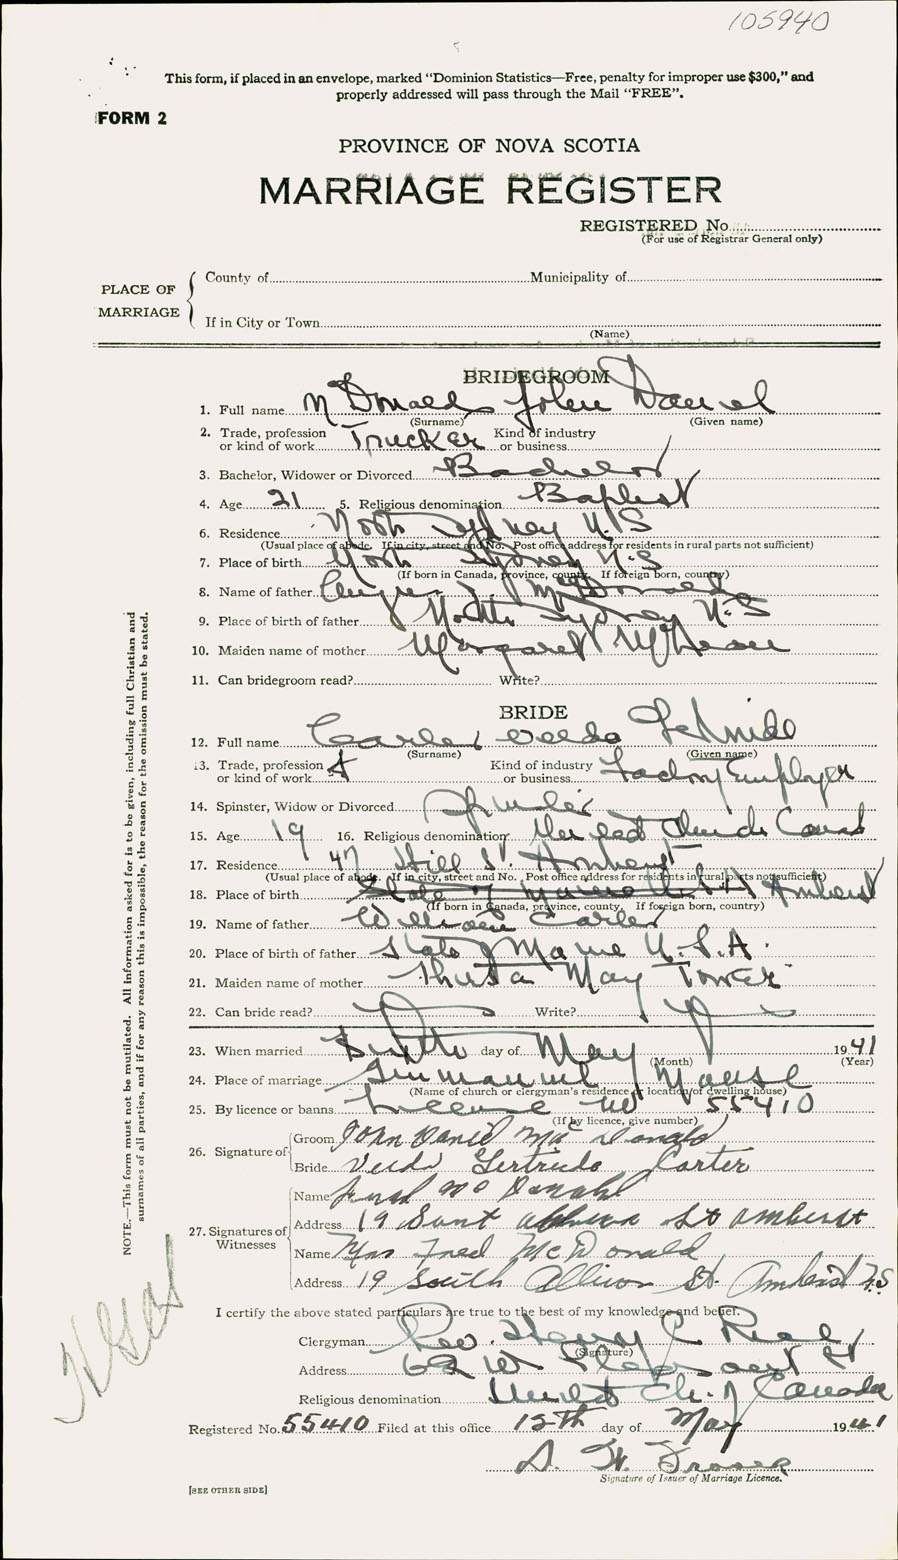 105940
This form, if placed in an envelope, marked "Dominion Statistics—Free, penalty for improper use $300," and
properly addressed will pass through the Mail "FREE".
FORM 2
PROVINCE OF NOVA SCOTIA
MARRIAGE REGISTER
REGISTERED No.
(For use of Registrar General only)
PLACE OF MARRIAGE
County of Municipality of
If in City or Town
(Name)
BRIDEGROOM
1. Full name McDonald John Daniel
(Surname) (Given name)
2. Trade, profession or kind of work Trucker Kind of industry or business
3. Bachelor, Widower or Divorced Bachelor
4. Age 21 5. Religious denomination Baptist
6. Residence North Sydney N.S
(Usual place of abode. If in city, street and No. Post office address for residents in rural parts not sufficient)
7. Place of birth North Sydney N.S
(If born in Canada, province, county. If foreign born, country)
8. Name of father Angus J McDonald
9. Place of birth of father North Sydney N.S
10. Maiden name of mother Margaret McLean
11. Can bridegroom read? Write?
BRIDE
12. Full name Carter Veeda
(Surname) (Given name)
13. Trade, profession or kind of work Kind of industry or business Factory Employee
14. Spinster, Widow or Divorced Spinster
15. Age 19 16. Religious denomination United Church Canada
17. Residence 47 Hill St. Amherst
(Usual place of abode. If in city, street and No. Post office address for residents in rural parts not sufficient)
18. Place of birth State of Maine Amherst
(If born in Canada, province, county. If foreign born, country)
19. Name of father William Carter
20. Place of birth of father State of Maine U.S.A.
21. Maiden name of mother May Tower
22. Can bride read? Yes Write? Yes
23. When married day of May 1941
(Month) (Year)
24. Place of marriage Immanuel Manse
(Name of church or clergyman's residence or location of dwelling house)
25. By licence or banns License No 55410
(If by licence, give number)
26. Signature of
Groom John Daniel MacDonald
Bride Veeda Gertrude Carter
27. Signatures of Witnesses
Name Fred McDonald
Address 19 St Amherst
Name Mrs Fred McDonald
Address 19 South Albion St. Amherst N.S
I certify the above stated particulars are true to the best of my knowledge and belief.
Clergyman Rev. Henry C
(Signature)
Address 62 W Pleasant St
Religious denomination United Ch. of Canada
Registered No. 55410 Filed at this office 12th day of May 1941
Signature of Issuer of Marriage Licence.
[SEE OTHER SIDE]
NOTE.—This form must not be mutilated. All information asked for is to be given, including full Christian and
surnames of all parties, and if for any reason this is impossible, the reason for the omission must be stated.